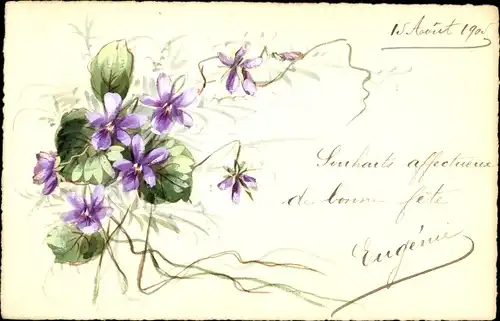 15 Août 190
Souhaits affectueux
de bonne fête
Eugénie